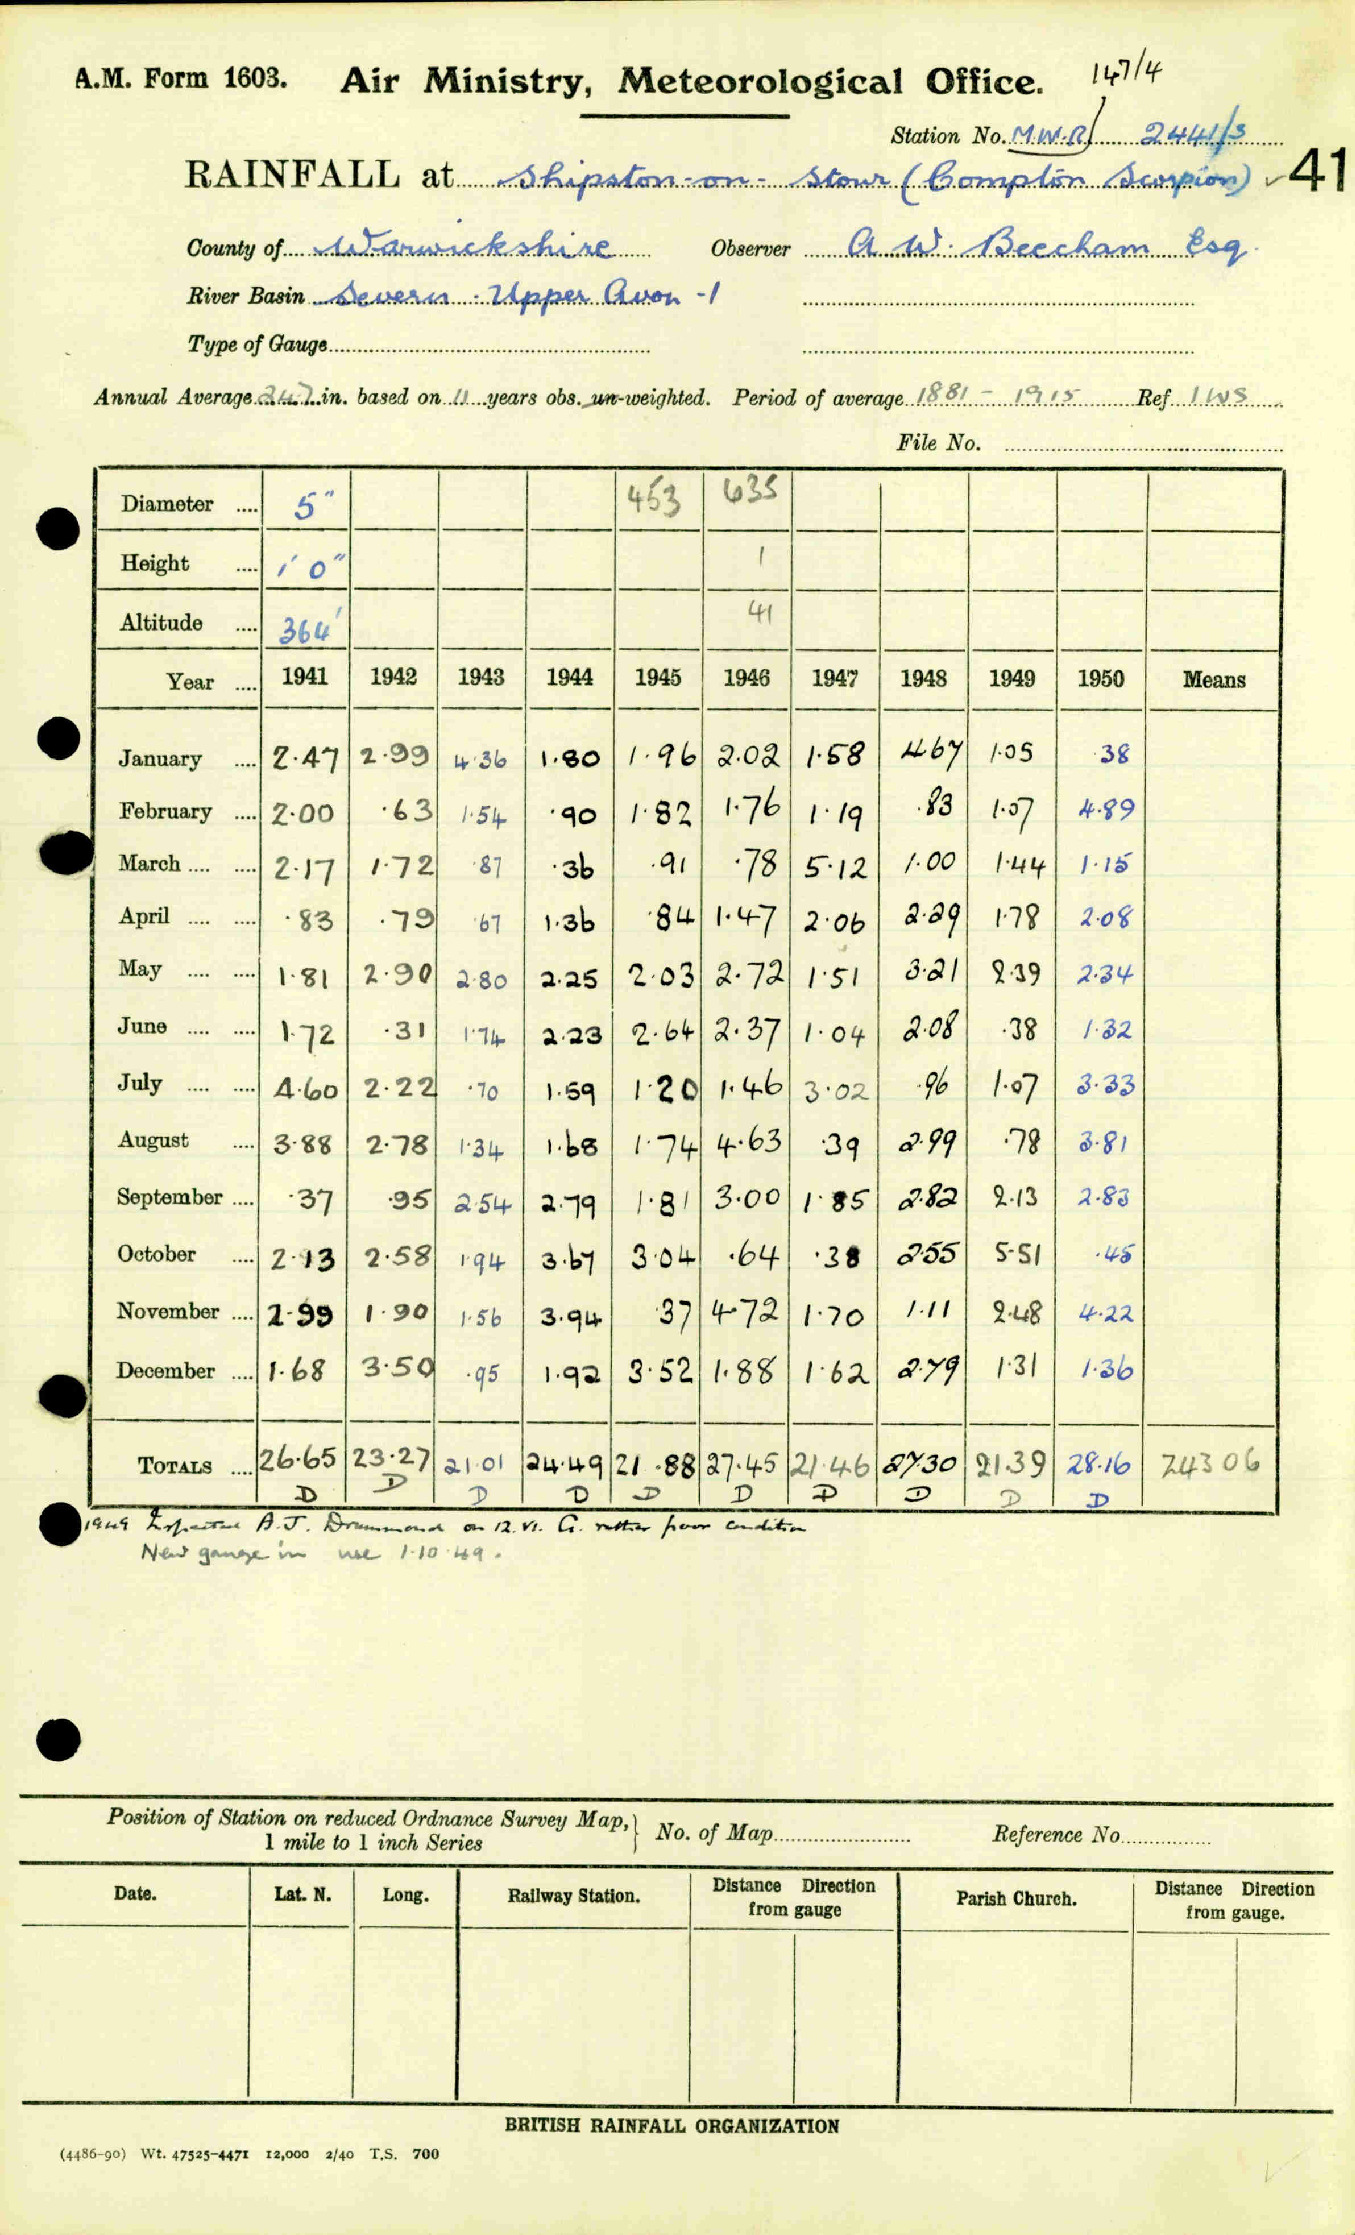 A.M. Form 1603. Air Ministry, Meteorological Office. 147/4
Station No. M.W.R/ 2441/3
RAINFALL at Shipston-on-Stour (Compton Scorpion) ✓ 41
County of Warwickshire Observer A. W. Beecham Esq.
River Basin Severn - Upper Avon -1
Type of Gauge
Annual Average 24.7 in. based on 11 years obs. un-weighted. Period of average 1881 - 1915 Ref. IWS
File No.
Diameter 5" 453 635
Height 1' 0" 1
Altitude 364' 41
Year 1941 1942 1943 1944 1945 1946 1947 1948 1949 1950 Means
January 2.47 2.99 4.36 1.80 1.96 2.02 1.58 4.67 1.05 .38
February 2.00 .63 1.54 .90 1.82 1.76 1.19 .83 1.07 4.89
March 2.17 1.72 .87 .36 .91 .78 5.12 1.00 1.44 1.15
April .83 .79 .67 1.36 .84 1.47 2.06 2.29 1.78 2.08
May 1.81 2.90 2.80 2.25 2.03 2.72 1.51 3.21 2.39 2.34
June 1.72 .31 1.74 2.23 2.64 2.37 1.04 2.08 .38 1.32
July 4.60 2.22 .70 1.59 1.20 1.46 3.02 .96 1.07 3.33
August 3.88 2.78 1.34 1.68 1.74 4.63 .39 2.99 .78 3.81
September .37 .95 2.54 2.79 1.81 3.00 1.85 2.82 2.13 2.83
October 2.13 2.58 1.94 3.67 3.04 .64 .38 2.55 5.51 .45
November 2.99 1.90 1.56 3.94 .37 4.72 1.70 1.11 2.48 4.22
December 1.68 3.50 .95 1.92 3.52 1.88 1.62 2.79 1.31 1.36
TOTALS 26.65 23.27 21.01 24.49 21.88 27.45 21.46 27.30 21.39 28.16 243 06
D D D D D D D D D D
1949 Inspected A.J. Drummond on 12.VI. G. rather poor condition
New gauge in use 1.10.49.
Position of Station on reduced Ordnance Survey Map,
1 mile to 1 inch Series
No. of Map Reference No.
Date. Lat. N. Long. Railway Station. Distance Direction from gauge Parish Church. Distance Direction from gauge.
BRITISH RAINFALL ORGANIZATION
(4486-90) Wt. 47525-4471 12,000 2/40 T.S. 700